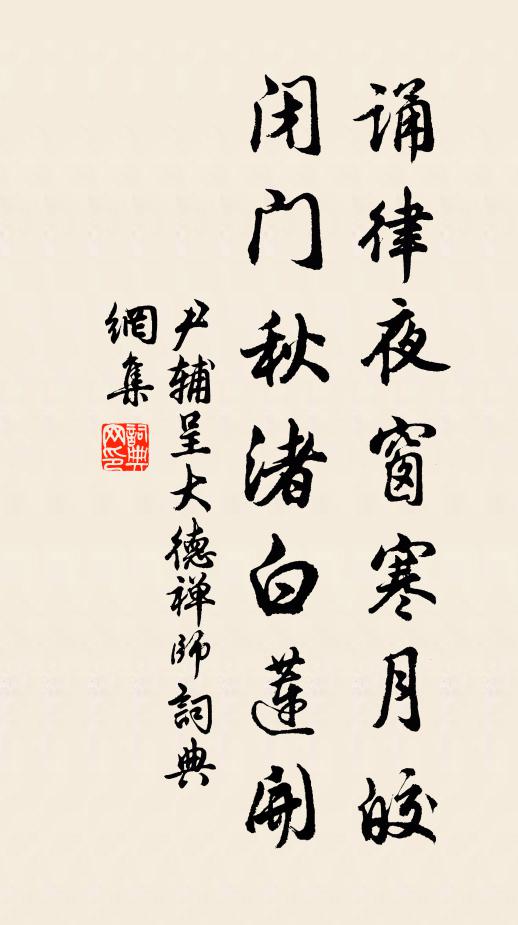 诵律夜窗寒月皎
闭门秋渚白莲开
尹辅呈大德禅师詞典
網集
詞典
网印